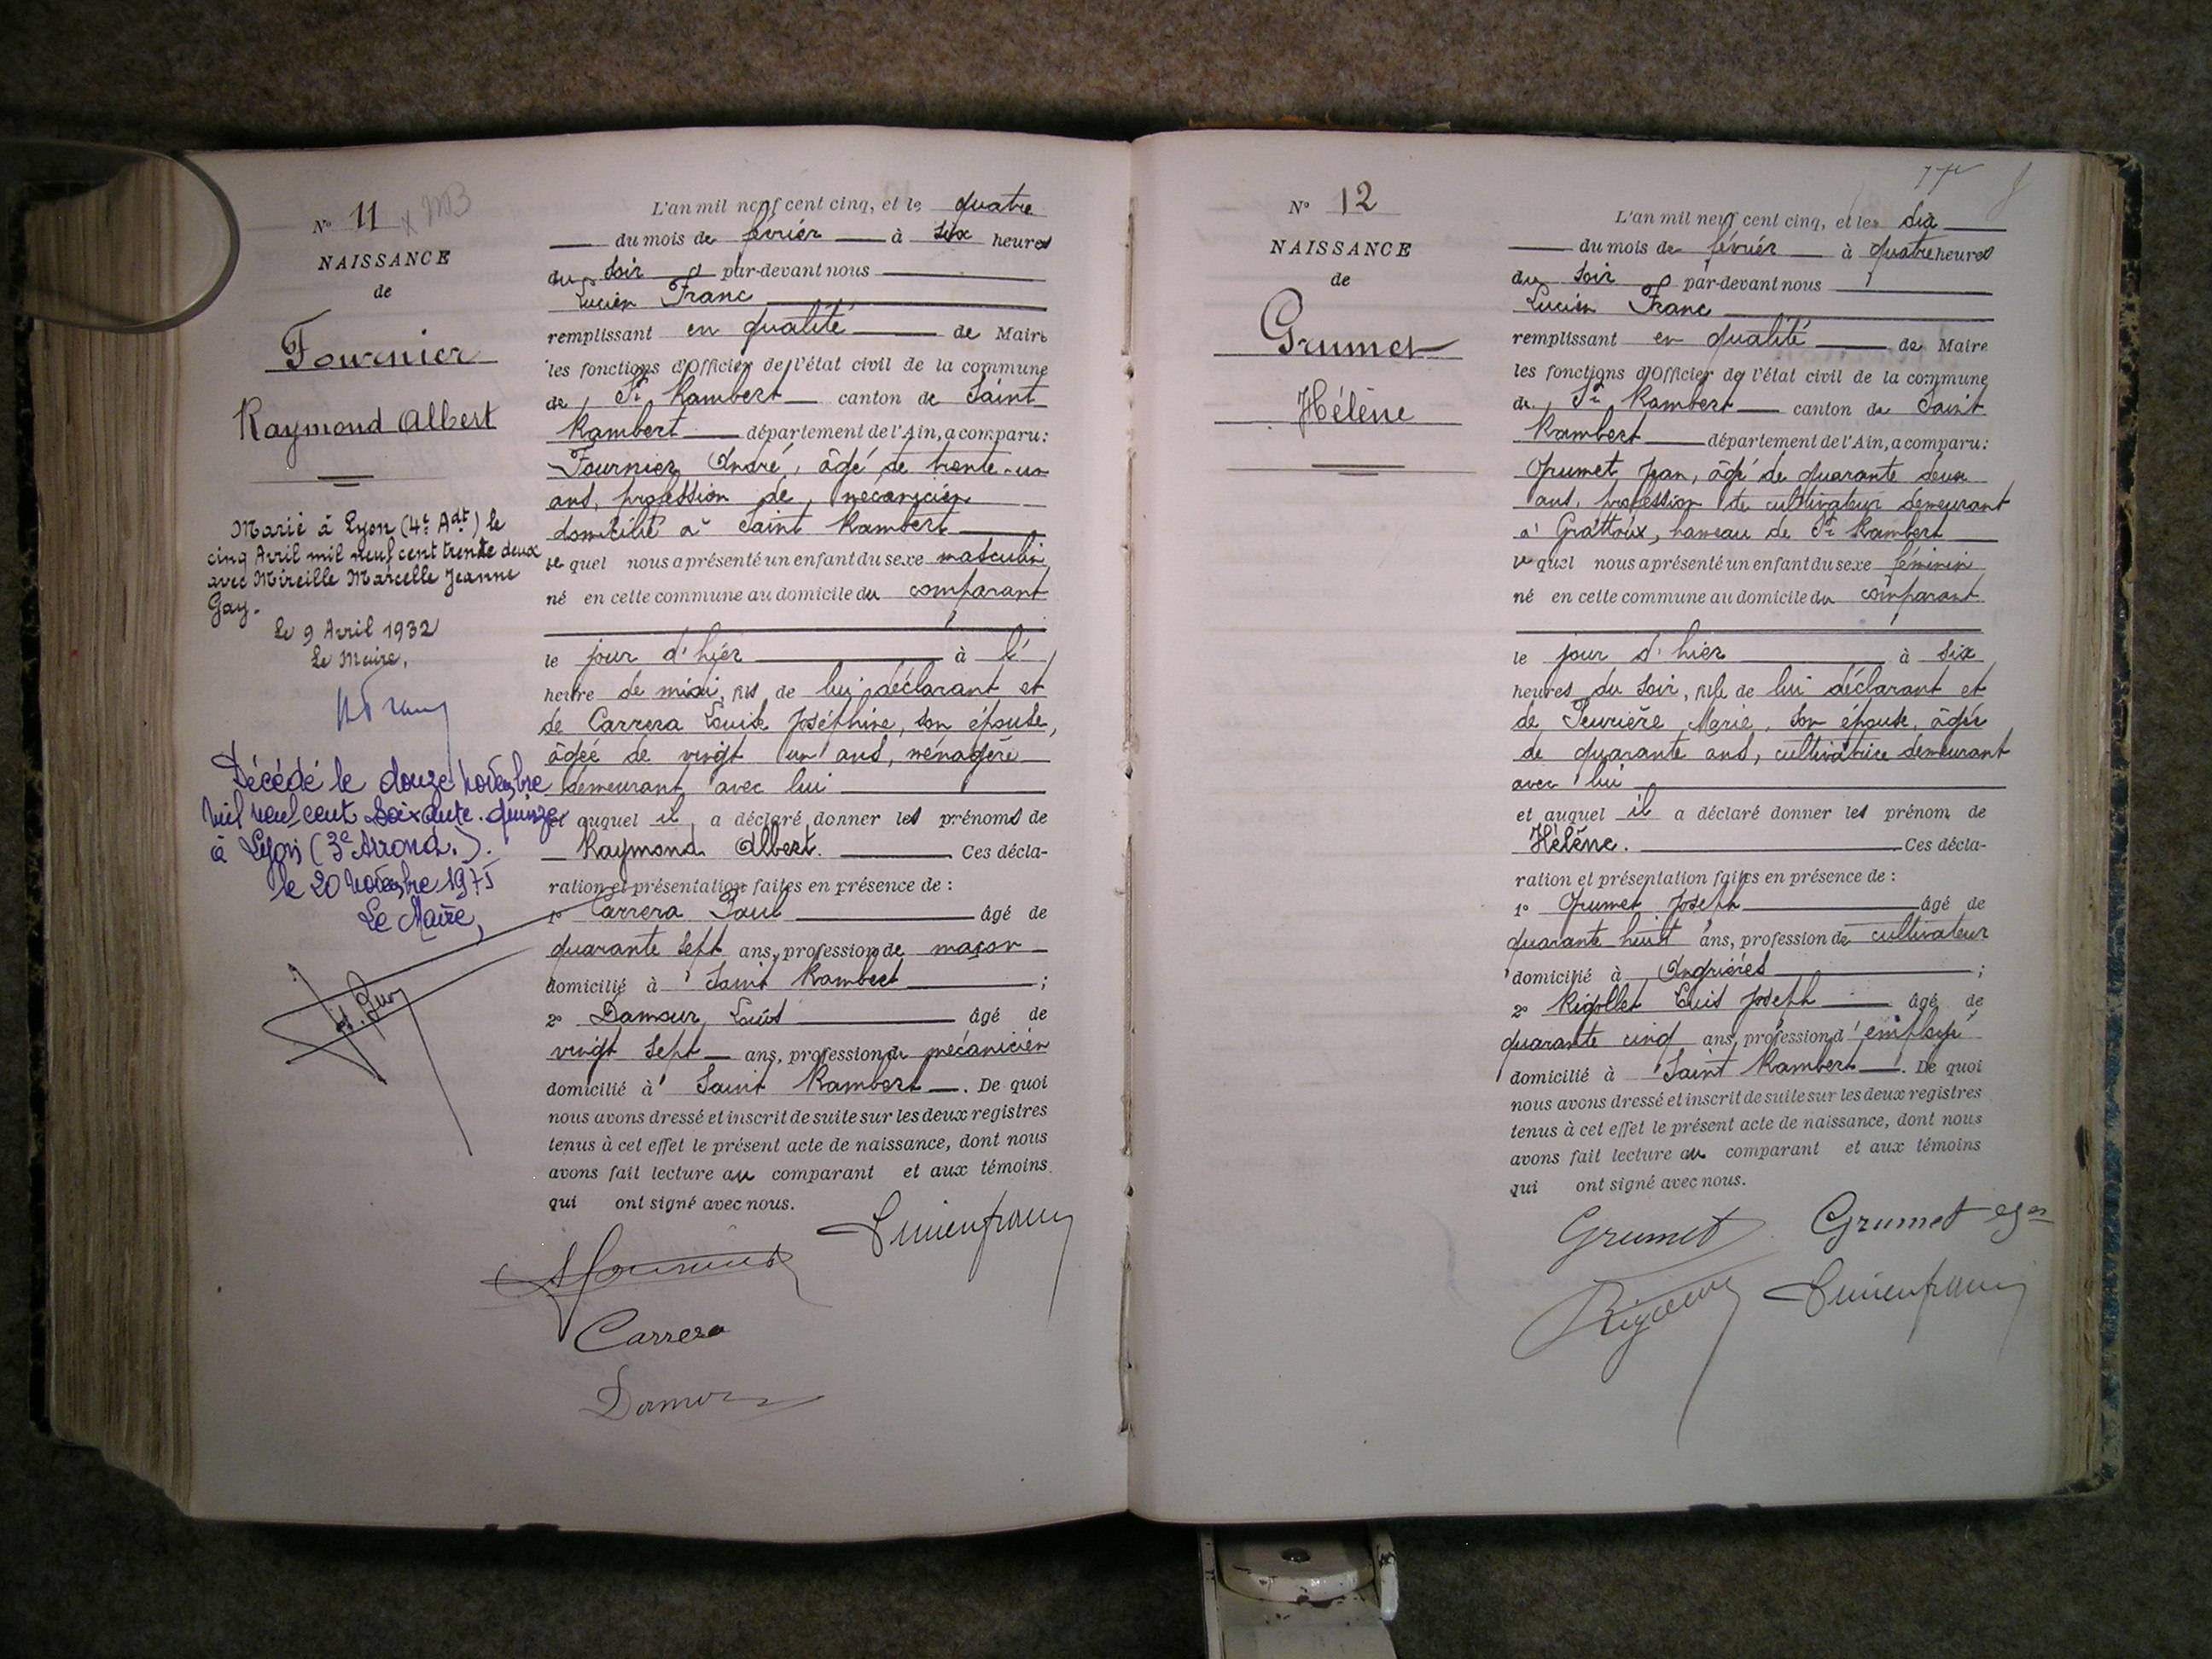 N° 11
NAISSANCE
de
Fournier
Raymond Albert
Marié à Lyon (4e Adt) le
cinq Avril mil neuf cent trente deux
avec Mireille Marcelle Jeanne
Gay.
Le 9 Avril 1932
Le Maire,
Décédé le douze novembre
mil neuf cent soixante-quinze
à Lyon (3e Arrond.).
le 20 novembre 1975
Le Maire,
L'an mil neuf cent cinq, et le quatre
du mois de février à six heures
du soir par-devant nous
Lucien Franc
remplissant en qualité de Maire
les fonctions d'Officier de l'état civil de la commune
de St Rambert canton de Saint
Rambert département de l'Ain, a comparu:
Fournier André, âgé de trente-un
ans, profession de mécanicien
domicilié à Saint Rambert
le quel nous a présenté un enfant du sexe masculin
né en cette commune au domicile du comparant
le jour d'hier à l'
heure de midi, fils de lui déclarant et
de Carrera Louise Joséphine, son épouse,
âgée de vingt un ans, ménagère
demeurant avec lui
et auquel il a déclaré donner les prénoms de
Raymond Albert. Ces décla-
ration et présentation faites en présence de :
1° Carrera Paul âgé de
quarante sept ans, profession de maçon
domicilié à Saint Rambert ;
2° Damour Louis âgé de
vingt sept ans, profession de mécanicien
domicilié à Saint Rambert. De quoi
nous avons dressé et inscrit de suite sur les deux registres
tenus à cet effet le présent acte de naissance, dont nous
avons fait lecture au comparant et aux témoins
qui ont signé avec nous.
Lucien franc
Carrera
Damour
N° 12
NAISSANCE
de
Grumet
Hélène
L'an mil neuf cent cinq, et le dix
du mois de février à quatre heures
du soir par-devant nous
Lucien Franc
remplissant en qualité de Maire
les fonctions d'Officier de l'état civil de la commune
de St Rambert canton de Saint
Rambert département de l'Ain, a comparu:
Grumet Jean, âgé de quarante deux
ans, profession de cultivateur demeurant
à Grattoux, hameau de St Rambert
le quel nous a présenté un enfant du sexe féminin
né en cette commune au domicile du comparant
le jour d'hier à six
heures du soir, fille de lui déclarant et
de Peurière Marie, son épouse, âgée
de quarante ans, cultivatrice demeurant
avec lui
et auquel il a déclaré donner les prénom de
Hélène. Ces décla-
ration et présentation faites en présence de :
1° Grumet Joseph âgé de
quarante huit ans, profession de cultivateur
domicilié à Angrières ;
2° Rigollet Louis Joseph âgé de
quarante cinq ans, profession d'employé
domicilié à Saint Rambert. De quoi
nous avons dressé et inscrit de suite sur les deux registres
tenus à cet effet le présent acte de naissance, dont nous
avons fait lecture au comparant et aux témoins
qui ont signé avec nous.
Grumet Grumet
Lucien franc